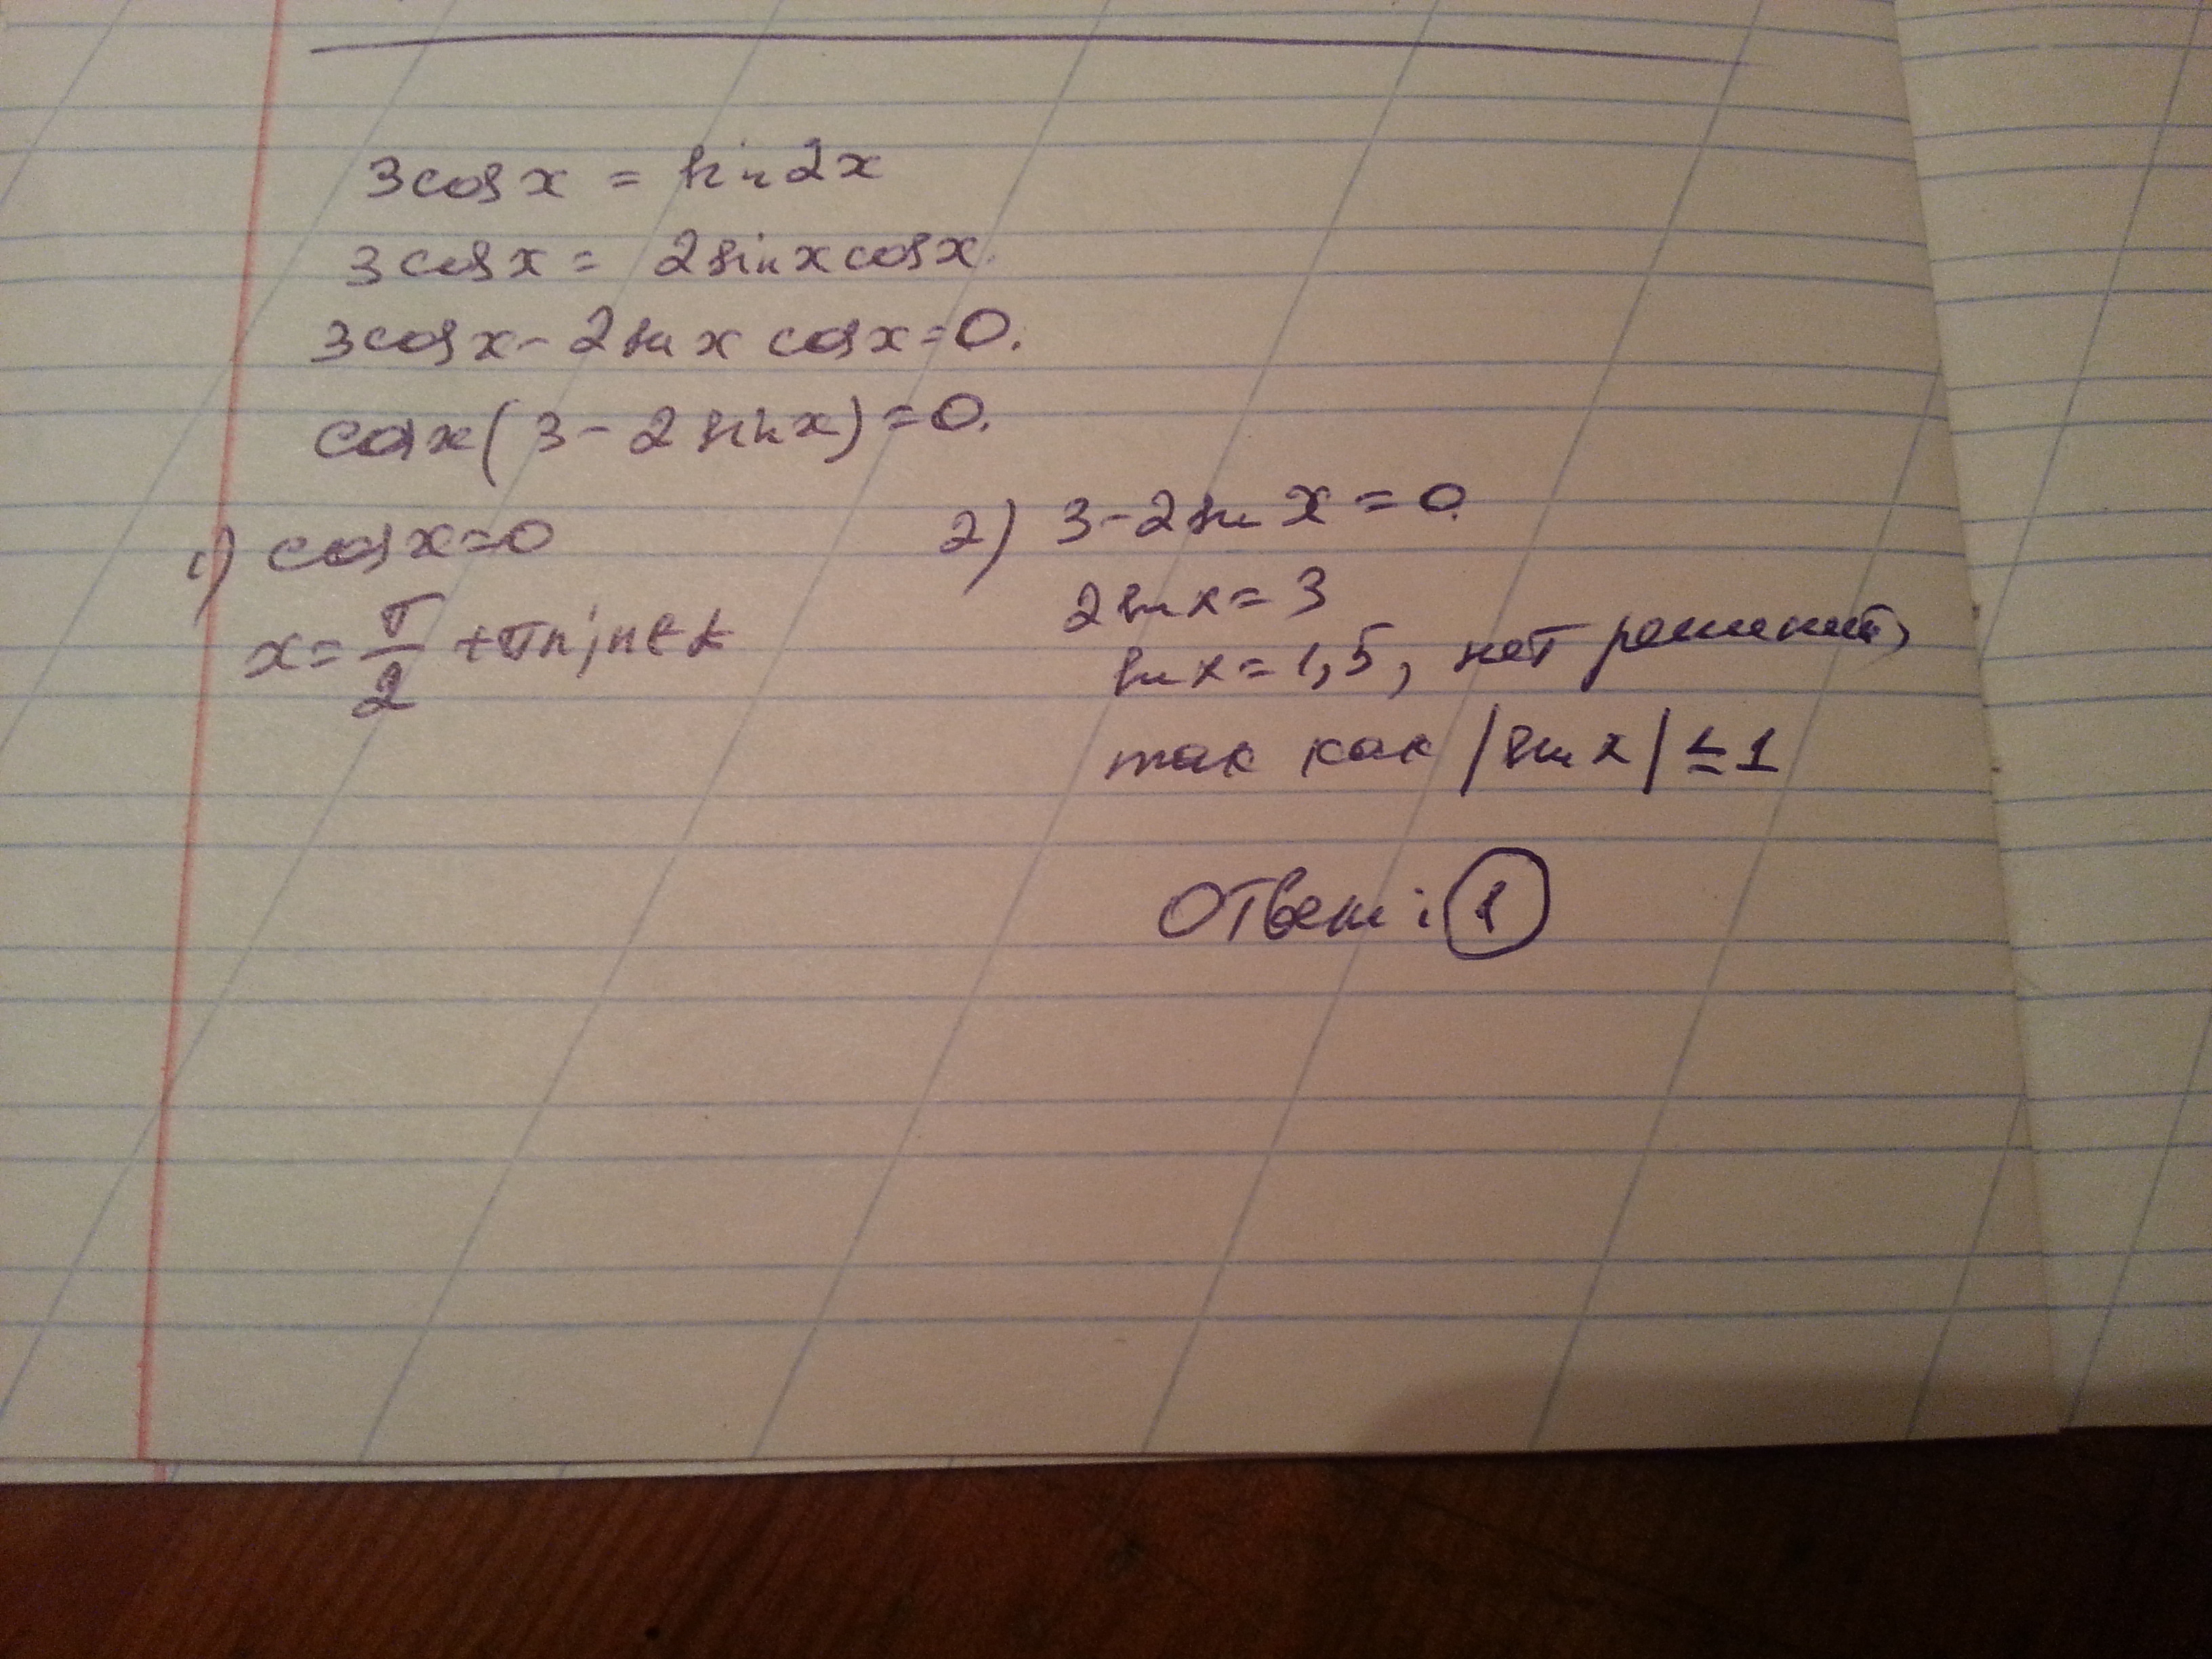 3cosx = sin2x
3cosx = 2sinxcosx.
3cosx - 2sinx cosx = 0.
cosx(3 - 2sinx) = 0.
1) cosx=0
x = π/2 + πn; n∈Z
2) 3 - 2sinx = 0.
2sinx = 3
sinx = 1,5, нет решений,
так как |sinx| ≤ 1
Ответ: 1